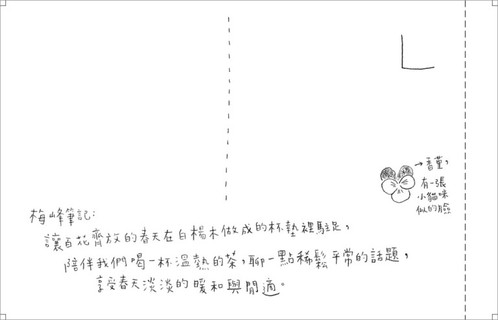 →香堇,
有一張
小貓咪
似的臉
梅峰筆記:
讓百花齊放的春天在白楊木做成的杯墊裡駐足,
陪伴我們喝一杯溫熱的茶,聊一點稀鬆平常的話題,
享受春天淡淡的暖和與閒適。